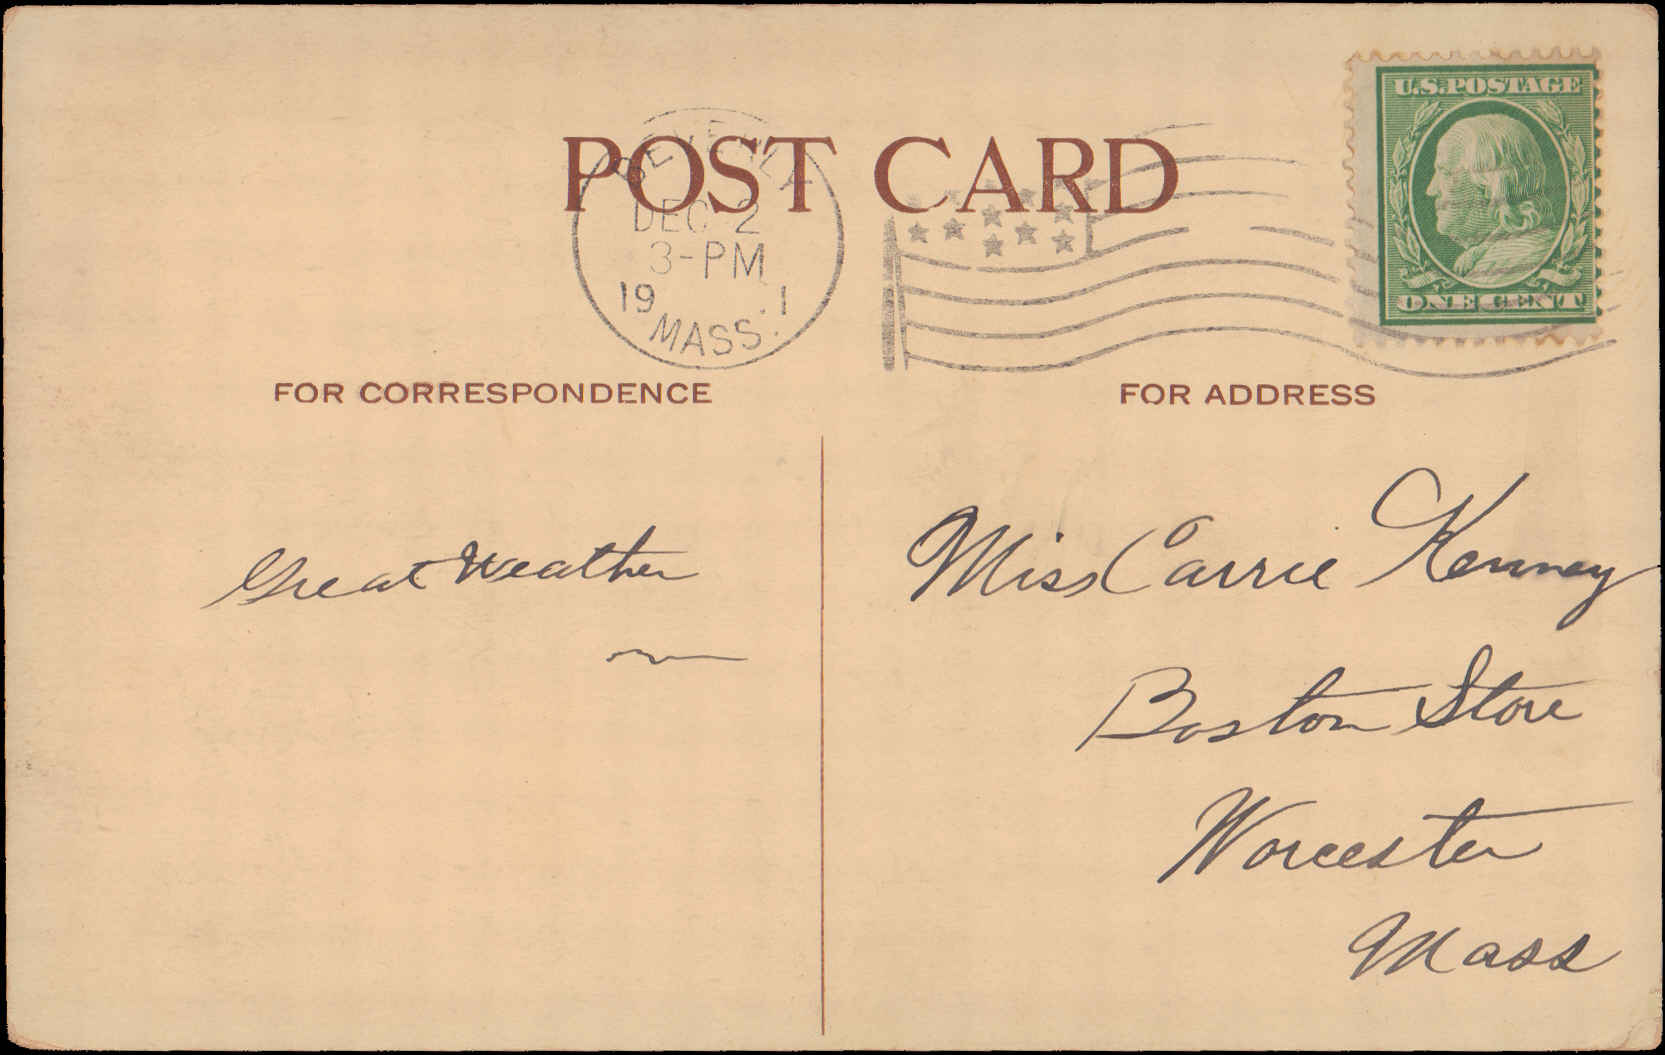 POST CARD
BEVERLY
DEC 2
3-PM
19 1
MASS.
U.S. POSTAGE
ONE CENT
FOR CORRESPONDENCE
FOR ADDRESS
Great Weather
Miss Carrie Kenney
Boston Store
Worcester
Mass